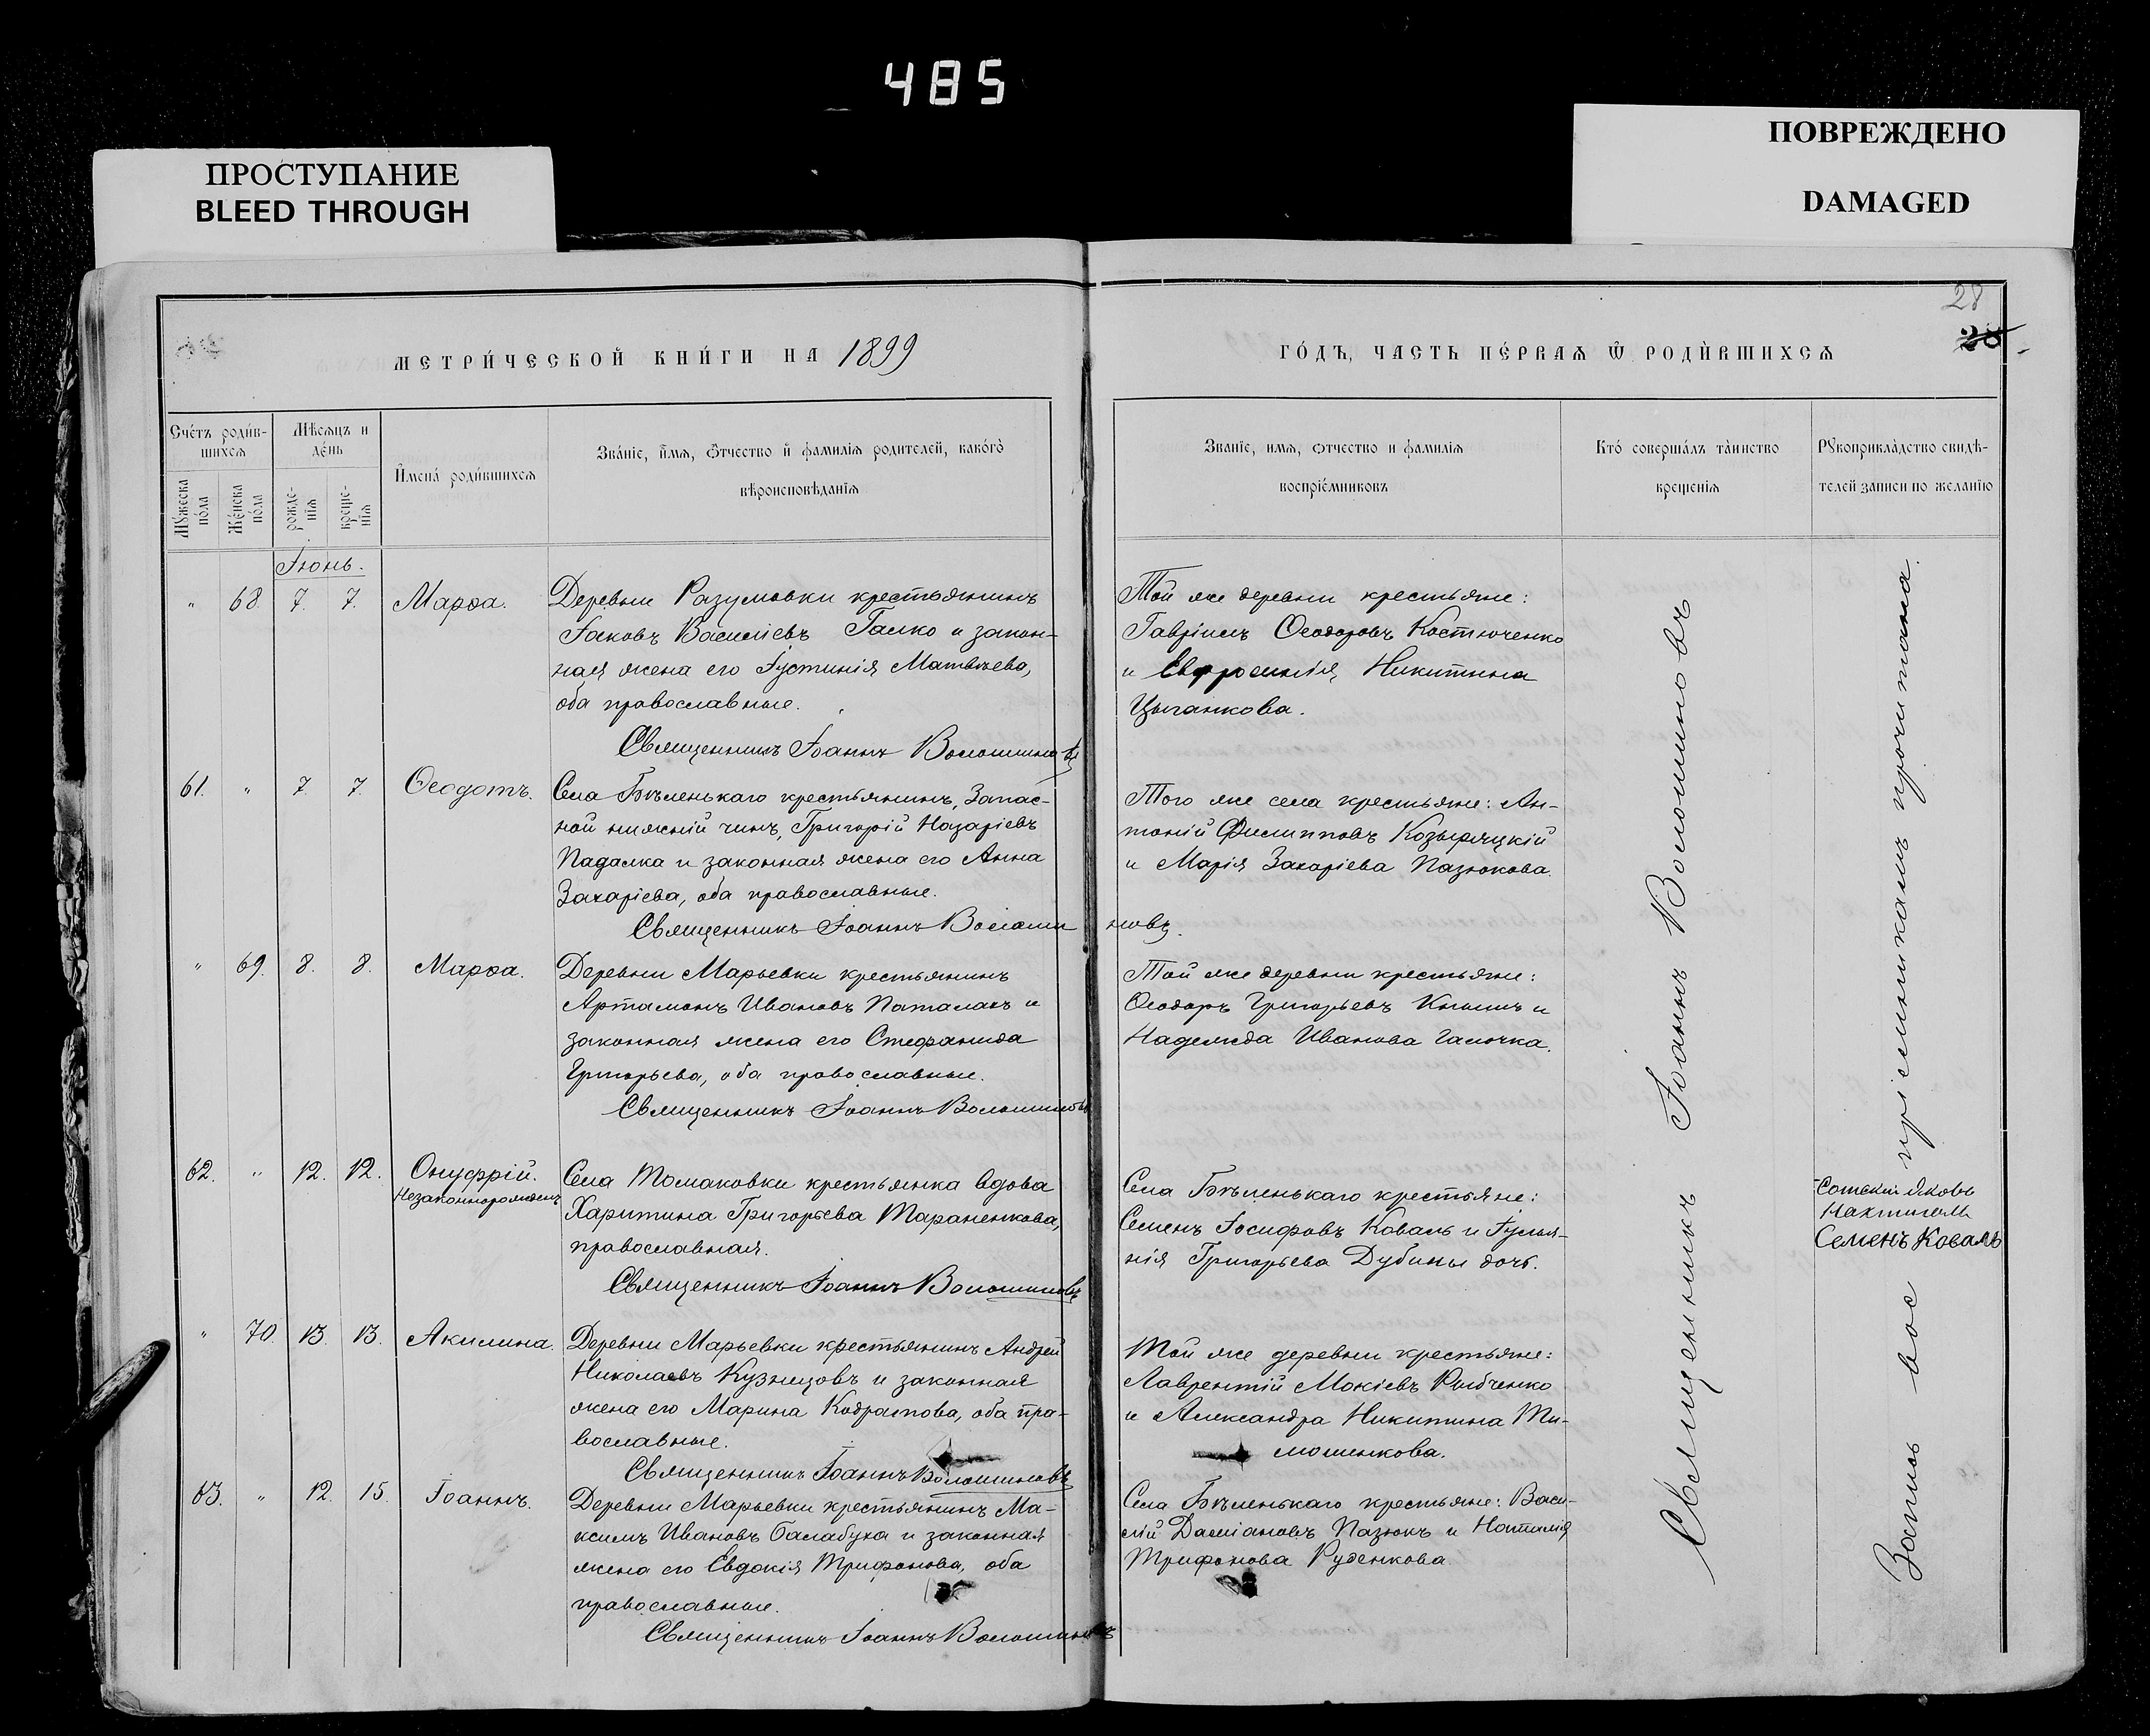 485
ПРОСТУПАНИЕ
BLEED THROUGH
ПОВРЕЖДЕНО
DAMAGED
28
28
МЕТРИ́ЧЕСКОЙ КНИ́ГИ НА 1899
ГО́ДЪ, ЧАСТЬ ПЕ́РВАѦ Ѿ РОДИ́ВШИХСѦ
Сче́тъ роди́в-
шихсѧ
Мꙋ́жеска по́ла
Же́нска по́ла
Мѣ́сѧцъ и
де́нь
рожде-
нїѧ
креще-
нїѧ
И́мена́ роди́вшихсѧ
Зва́нїе, и́мѧ, ѻ́тчество и́ фамилїѧ родителей, како́гѡ
вѣроисповѣданїѧ
Званїе, имѧ, ѻтчество и фамилїѧ
воспрїе́мниковъ
Кто́ соверша́лъ та́инство
креще́нїѧ
Рꙋкоприкла́дство свидѣ́-
телей записи по желанїю
Іюнь.
" 68. 7. 7. Марѳа.
Деревни Разумовки крестьянинъ
Іаковъ Василіевъ Галко и закон-
ная жена его Іустинія Матвѣева,
оба православные.
Священникъ Іоаннъ Волошиновъ
Той же деревни крестьяне:
Гавріилъ Ѳеодоровъ Костюченко
и Евфросинія Никитина
Цыганкова.
61. " 7. 7. Ѳеодотъ.
Села Бѣленькаго крестьянинъ, Запас-
ной нижній чинъ, Григорій Назаріевъ
Падалка и законная жена его Анна
Захаріева, оба православные.
Священникъ Іоаннъ Волошиновъ.
Того же села крестьяне: Ан-
тоній Филипповъ Козыряцкій
и Марія Захаріева Пазюкова.
" 69. 8. 8. Марѳа.
Деревни Марьевки крестьянинъ
Артамонъ Ивановъ Паталахъ и
законная жена его Стефанида
Григорьева, оба православные.
Священникъ Іоаннъ Волошиновъ
Той же деревни крестьяне:
Ѳеодоръ Григорьевъ и
Надежда Иванова Галочка.
62. " 12. 12. Онуфрій.
Незаконнорожденъ
Села Томаковки крестьянка вдова
Харитина Григорьева Тараненкова,
православная.
Священникъ Іоаннъ Волошиновъ
Села Бѣленькаго крестьяне:
Семенъ Іосифовъ Коваль и Іулiа-
нія Григорьева Дубины дочь.
Сотскій Яковъ
Семенъ Коваль
" 70. 13. 13. Акилина.
Деревни Марьевки крестьянинъ Андрей
Николаевъ Кузнецовъ и законная
жена его Марина Кодратова, оба пра-
вославные.
Священникъ Іоаннъ Волошиновъ
Той же деревни крестьяне:
Лаврентій Мокіевъ Рыбченко
и Александра Никитина Ти-
мошенкова.
63. " 12. 15. Іоаннъ.
Деревни Марьевки крестьянинъ Ма-
ксимъ Ивановъ Балабуха и законная
жена его Евдокія Трифонова, оба
православные.
Священникъ Іоаннъ Волошиновъ
Села Бѣленькаго крестьяне: Васи-
лій Даміановъ Пазюкъ и Наталія
Трифонова Руденкова
Священникъ Іоаннъ Волошиновъ
Запись воспріемникамъ прочитана.